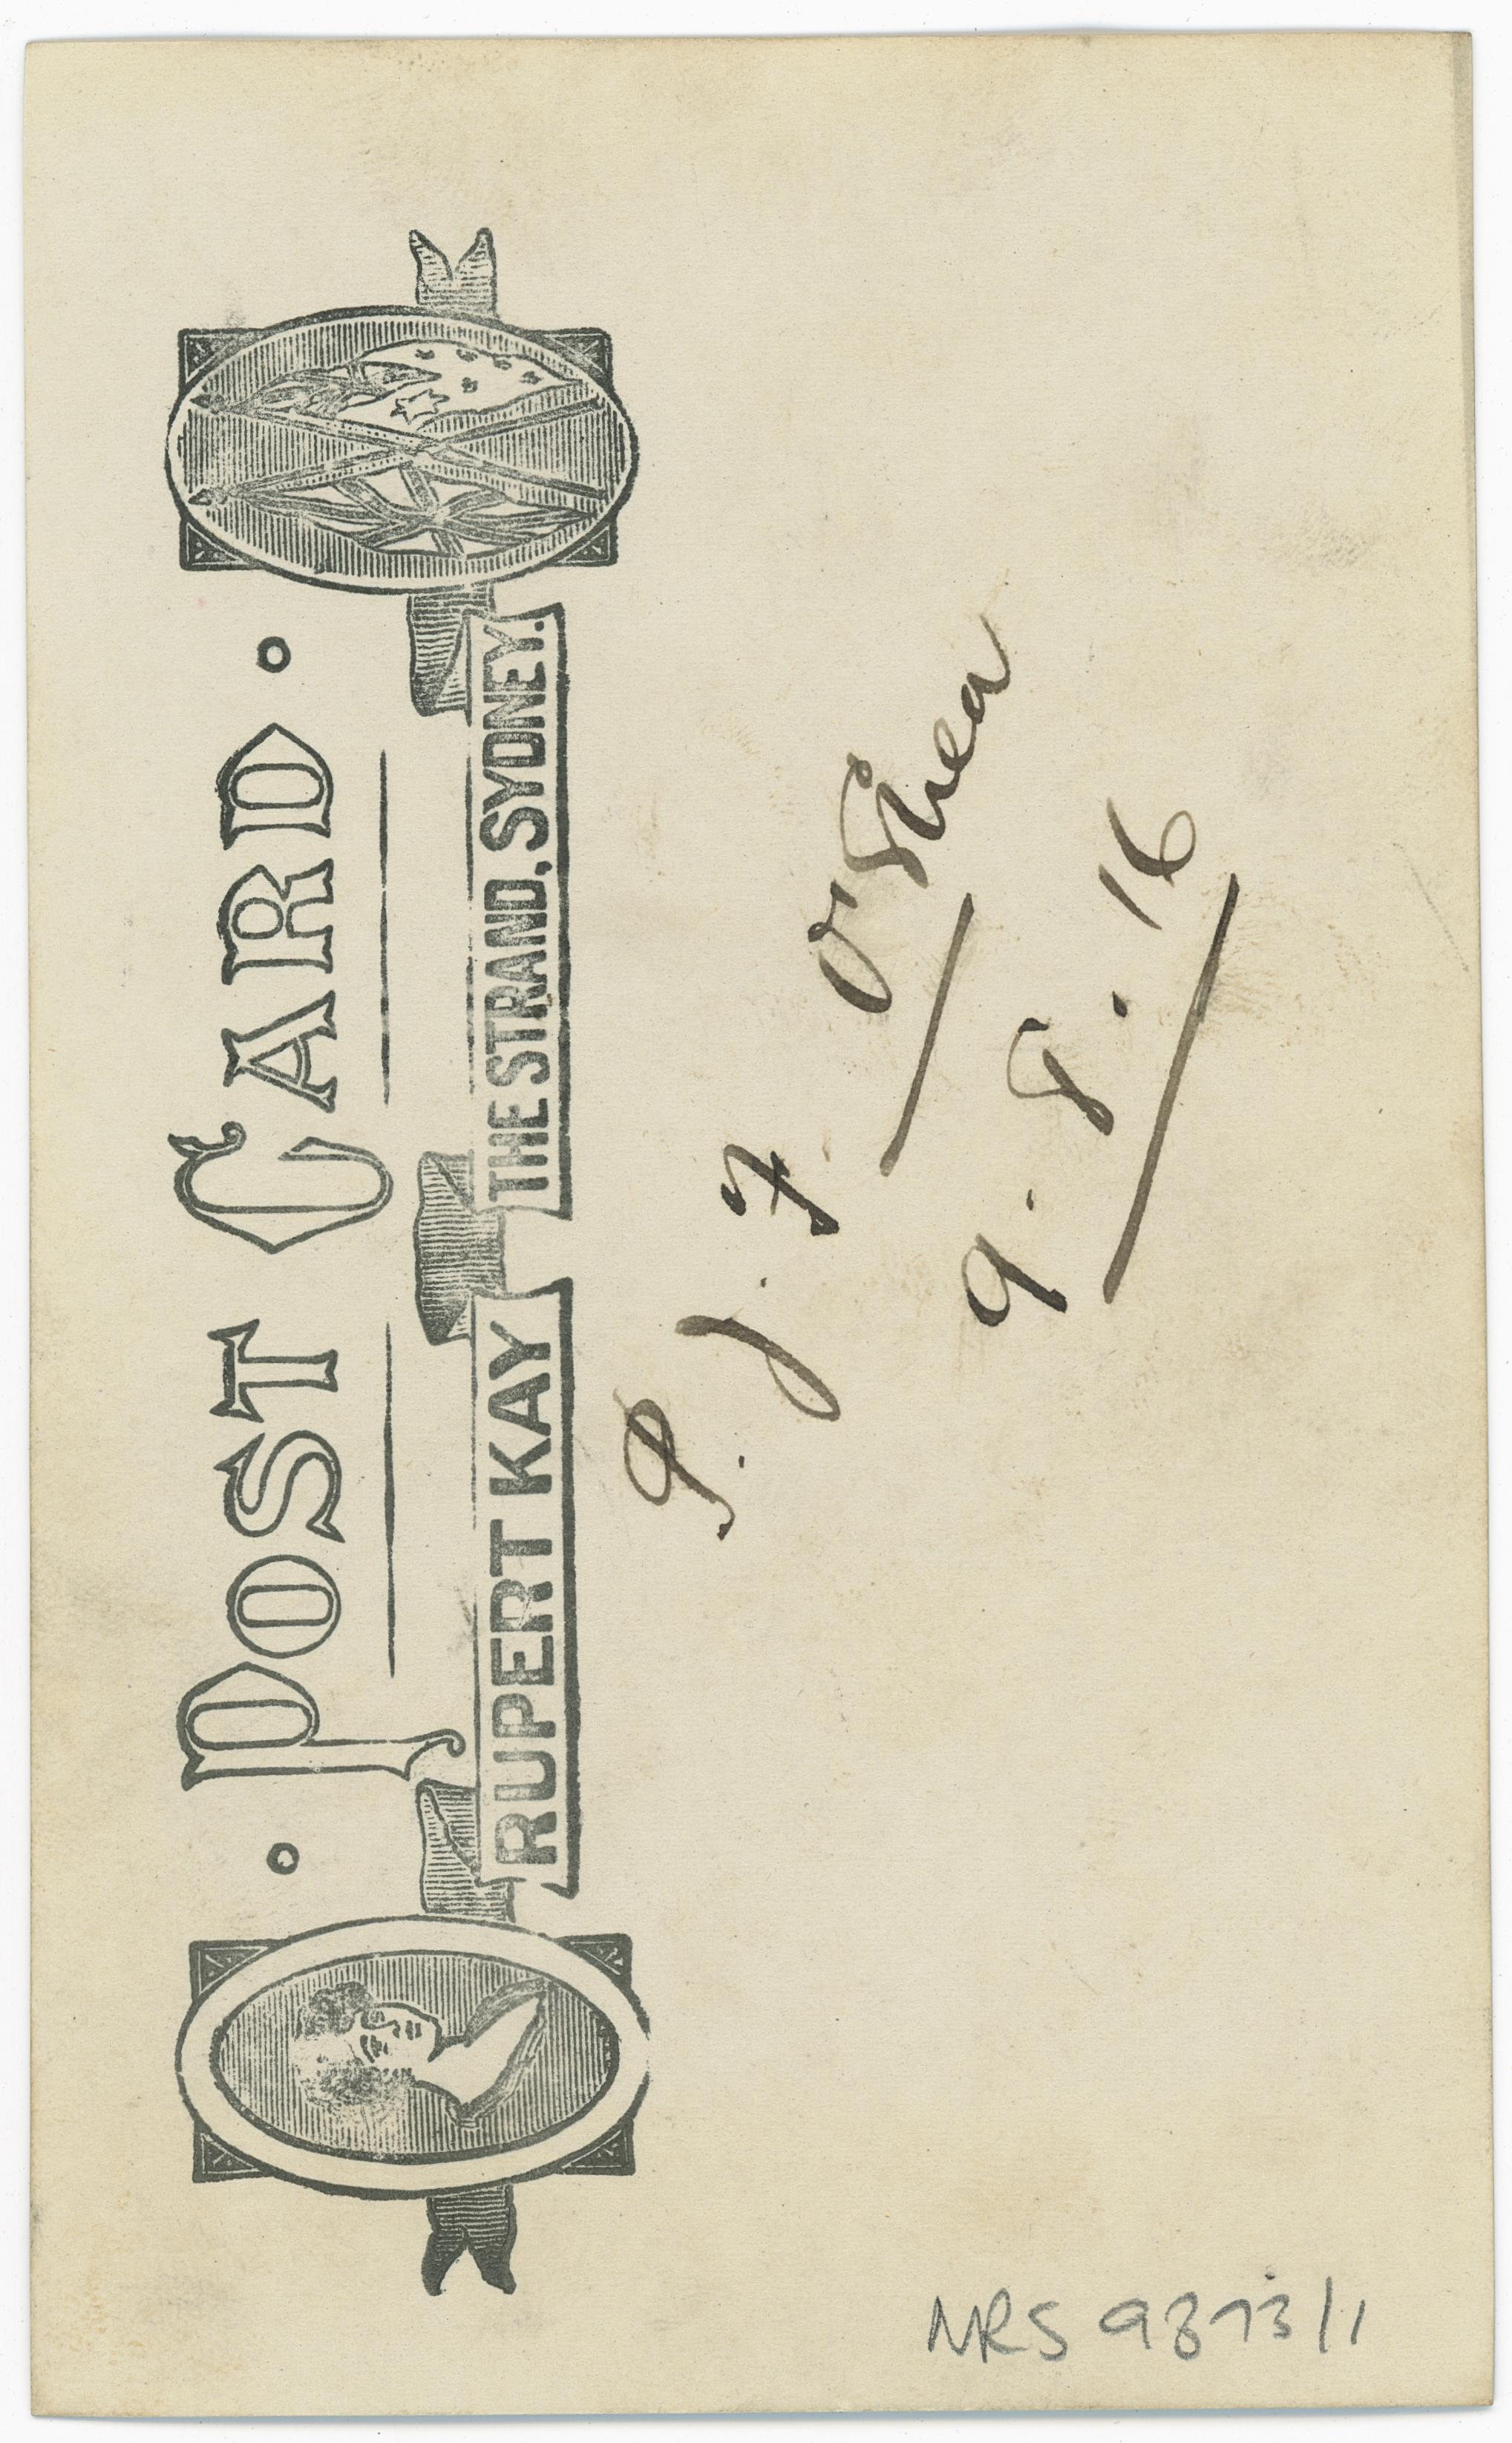 POST CARD
RUPERT KAY THE STRAND, SYDNEY.
P. J. F O'Shea
9. 8. 16
NRS 9873/1